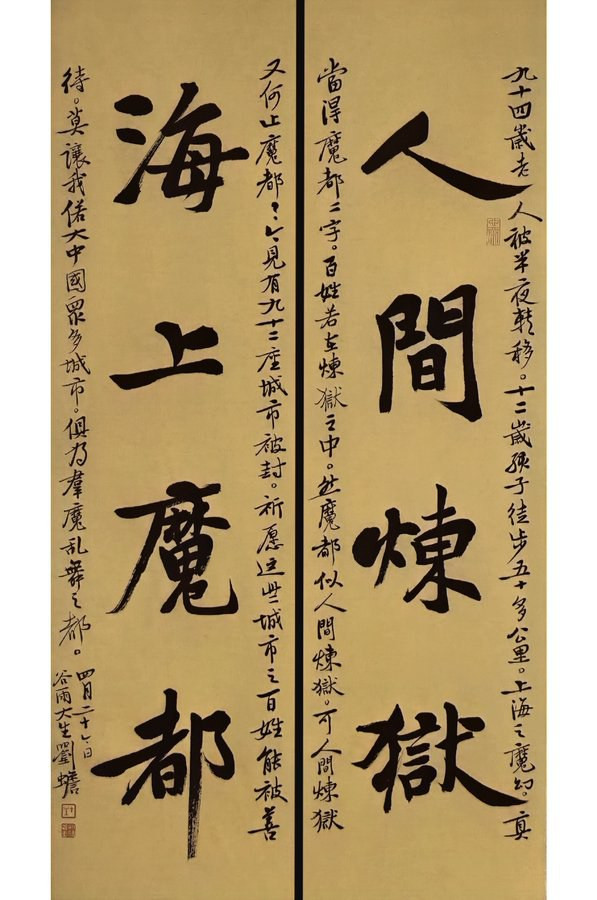 九十四歲老人被半夜轉移。十二歲孩子徒步五十多公里。上海之魔幻。真
人間煉獄
當得魔都二字。百姓若在煉獄之中。然魔都似人間煉獄。可人間煉獄
又何止魔都？今見有九十二座城市被封。祈愿这些城市之百姓能被善
海上魔都
待。莫讓我偌大中國眾多城市。俱为羣魔乱舞之都。
四月二十六日
谷雨大生劉蟾